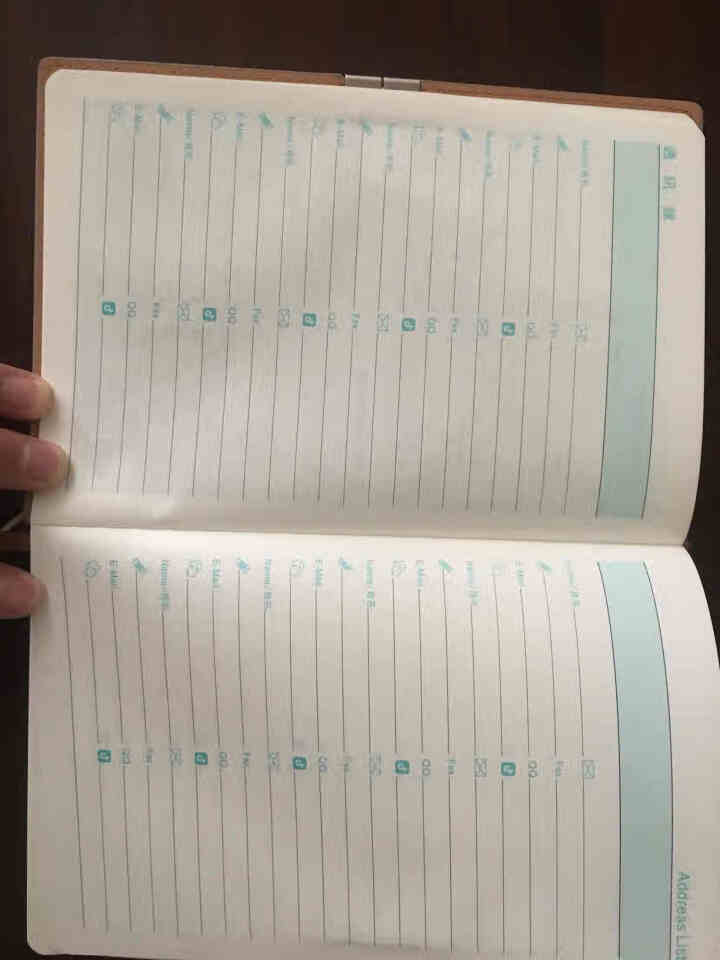 通訊錄
Name/姓名
Fax
E-Mail QQ
Name/姓名
Fax
E-Mail QQ
Name/姓名
Fax
E-Mail QQ
Name/姓名
Fax
E-Mail QQ
Name/姓名
Fax
E-Mail QQ
Address List
Name/姓名
Fax
E-Mail QQ
Name/姓名
Fax
E-Mail QQ
Name/姓名
Fax
E-Mail QQ
Name/姓名
Fax
E-Mail QQ
Name/姓名
Fax
E-Mail QQ